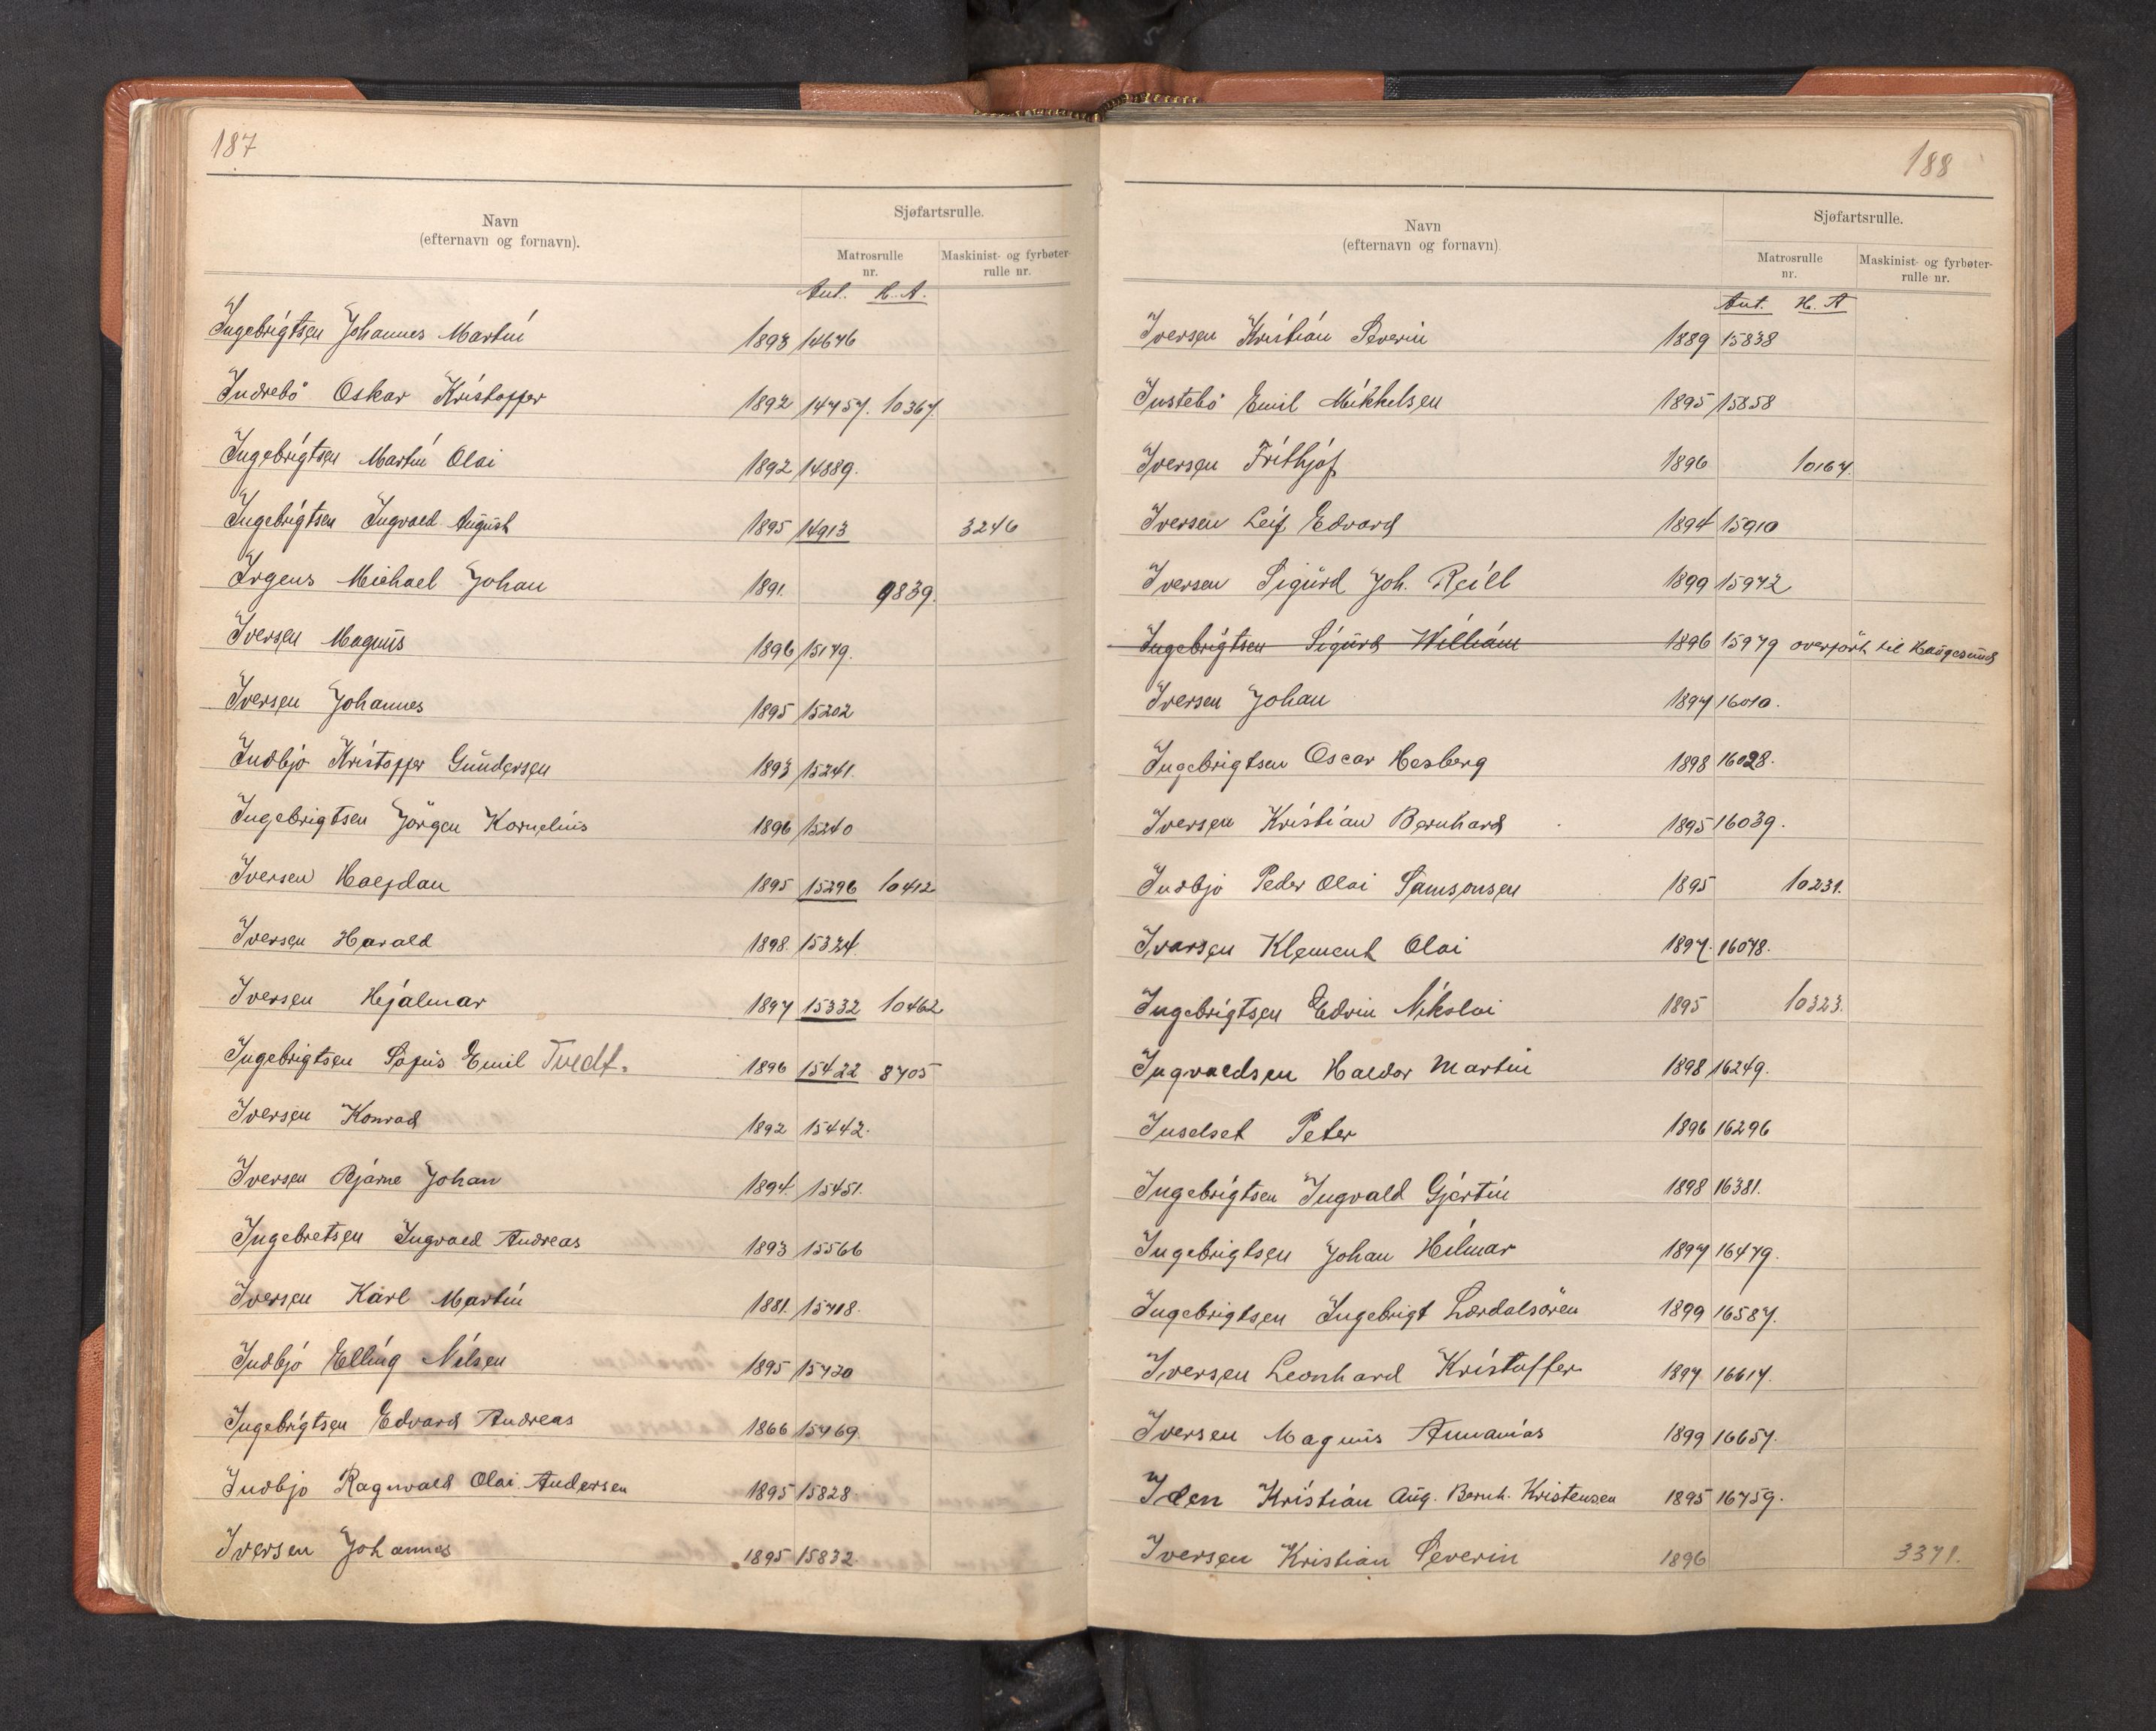 187
Navn
(efternavn og fornavn).
Sjøfartsrulle.
Matrosrulle
nr.
Maskinist- og fyrbøter-
rulle nr.
Ant. H. A.
Ingebrigtsen Johannes Martin 1893 14676
Indrebö Oskar Kristoffer 1892 14757. 10367.
Ingebrigtsen Martin Olai 1892 14889.
Ingebrigtsen Ingvald August 1895 14913 3246
Irgens Michael Johan 1891. 9839.
Iversen Magnus 1896 15179.
Iversen Johannes 1895 15202
Indbjo Kristoffer Gundersen 1893 15241.
Ingebrigtsen Jörgen Kornelius 1896 15240
Iversen Halfdan 1895 15296 10412
Iversen Harald 1898. 15324.
Iversen Hjalmar 1897 15332 10462
Ingebrigtsen Sofus Emil Tvedt. 1896 15422 8705
Iversen Konrad 1892 15442.
Iversen Bjarne Johan 1894. 15451.
Ingebretsen Ingvald Andreas 1893 15566
Iversen Karl Martin 1881. 15718.
Indbjó Elling Nilsen 1895 15720
Ingebrigtsen Edvard Andreas 1866 15769.
Indbjo Ragnvald Olai Andersen 1895 15828.
Iversen Johannes 1895 15832.
188
Navn
(efternavn og fornavn).
Sjøfartsrulle.
Matrosrulle
nr.
Maskinist- og fyrbøter-
rulle nr.
Ant. H. A
Iversen Kristian Severin 1889 15838
Instebö Emil Mikkelsen 1895 15858
Iversen Frithjof 1896 10167.
Iversen Leif Edvard 1894 15910
Iversen Sigurd Joh. Reill 1899 15972
Ingebrigtsen Sigurd William 1896 15979 overført til Haugesund
Iversen Johan 1897 16010.
Ingebrigtsen Oscar Hesberg 1898 16028.
Iversen Kristian Bernhard 1895 16039.
Indbjo Peder Olai Samsonsen 1895 10231.
Ivarsen Klement Olai 1897. 16078.
Ingebrigtsen Edvin Nikolai 1895 10323.
Ingvaldsen Haldor Martin 1898 16249.
Inselset Peter 1896 16296
Ingebrigtsen Ingvald Gjertin 1898 16381.
Ingebrigtsen Johan Hilmar 1897 16479.
Ingebrigtsen Ingebrigt Lærdalsören 1899 16587.
Iversen Leonhard Kristoffer 1897 16617.
Iversen Magnus Annanias 1899 16657.
Iden Kristian Aug. Bernh. Kristensen 1895 16759.
Iversen Kristian Severin 1896 3371.